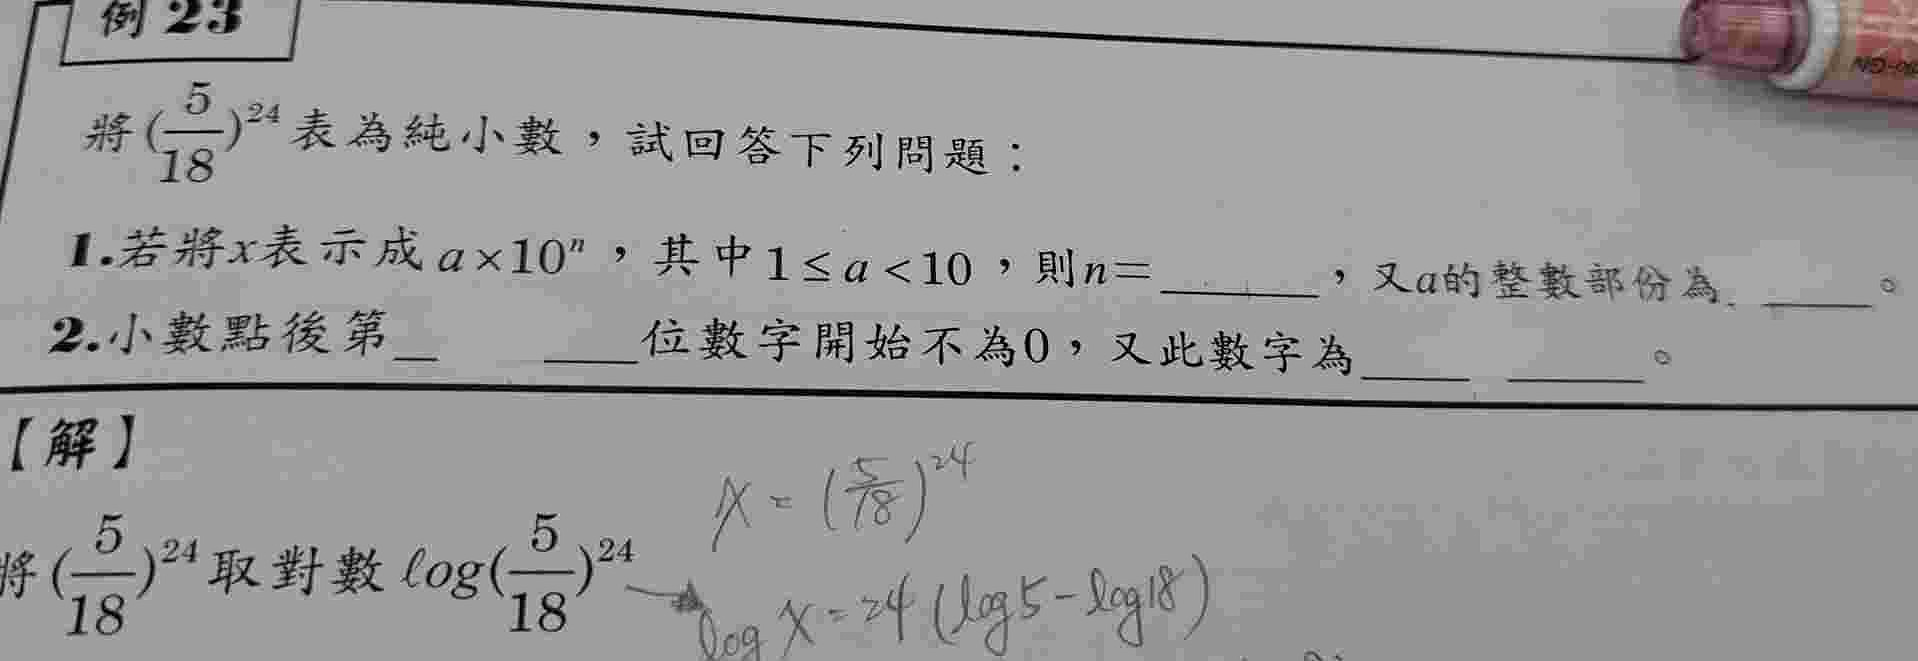 例 23
將(5/18)^24 表為純小數，試回答下列問題：
1.若將x表示成 a×10^n，其中1≤a<10，則n=______，又a的整數部份為 ____。
2.小數點後第__ ____位數字開始不為0，又此數字為____ _____。
【解】
將(5/18)^24取對數 log(5/18)^24
x = (5/18)^24
log x = 24 (log5 - log18)